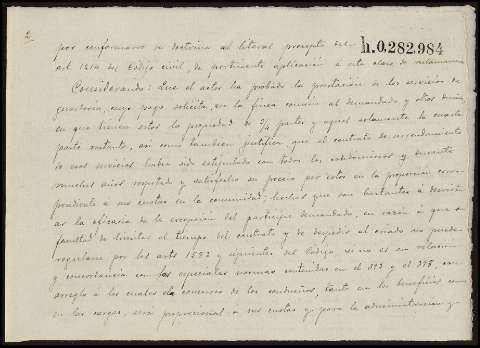 2
h.0.282.984
por conformarse su doctrina al literal precepto del
art. 1214 del Código civil, de pertinente aplicación á esta clase de
Considerando: Que el actor ha probado la prestación de los servicios de
guardería, cuyo pago solicita, en la finca común al demandado y otros
en que tienen estos la propiedad de 3/4 partes y aquel solamente la cuarta
parte restante, así como tambien justifica que el contrato de arrendamiento
de esos servicios habia sido estipulado con todos los condominos y durante
muchos años respetado y satisfecho su precio por este en la proporción corres
pondiente á sus cuotas en la comunidad; hechos que son bastantes á
ar la eficacia de la excepción del participe demandado, en razón á que
facultad de limitar el tiempo del contrato y de despedir al criado no puede
regularse por los arts 1583 y siguientes del Código si no es en relación
y concordancia con las especiales normas contenidas en el 393 y el 398, con
arreglo á los cuales el concurso de los condueños, tanto en los beneficios como
en las cargas, será proporcional á sus cuotas y para la administración y